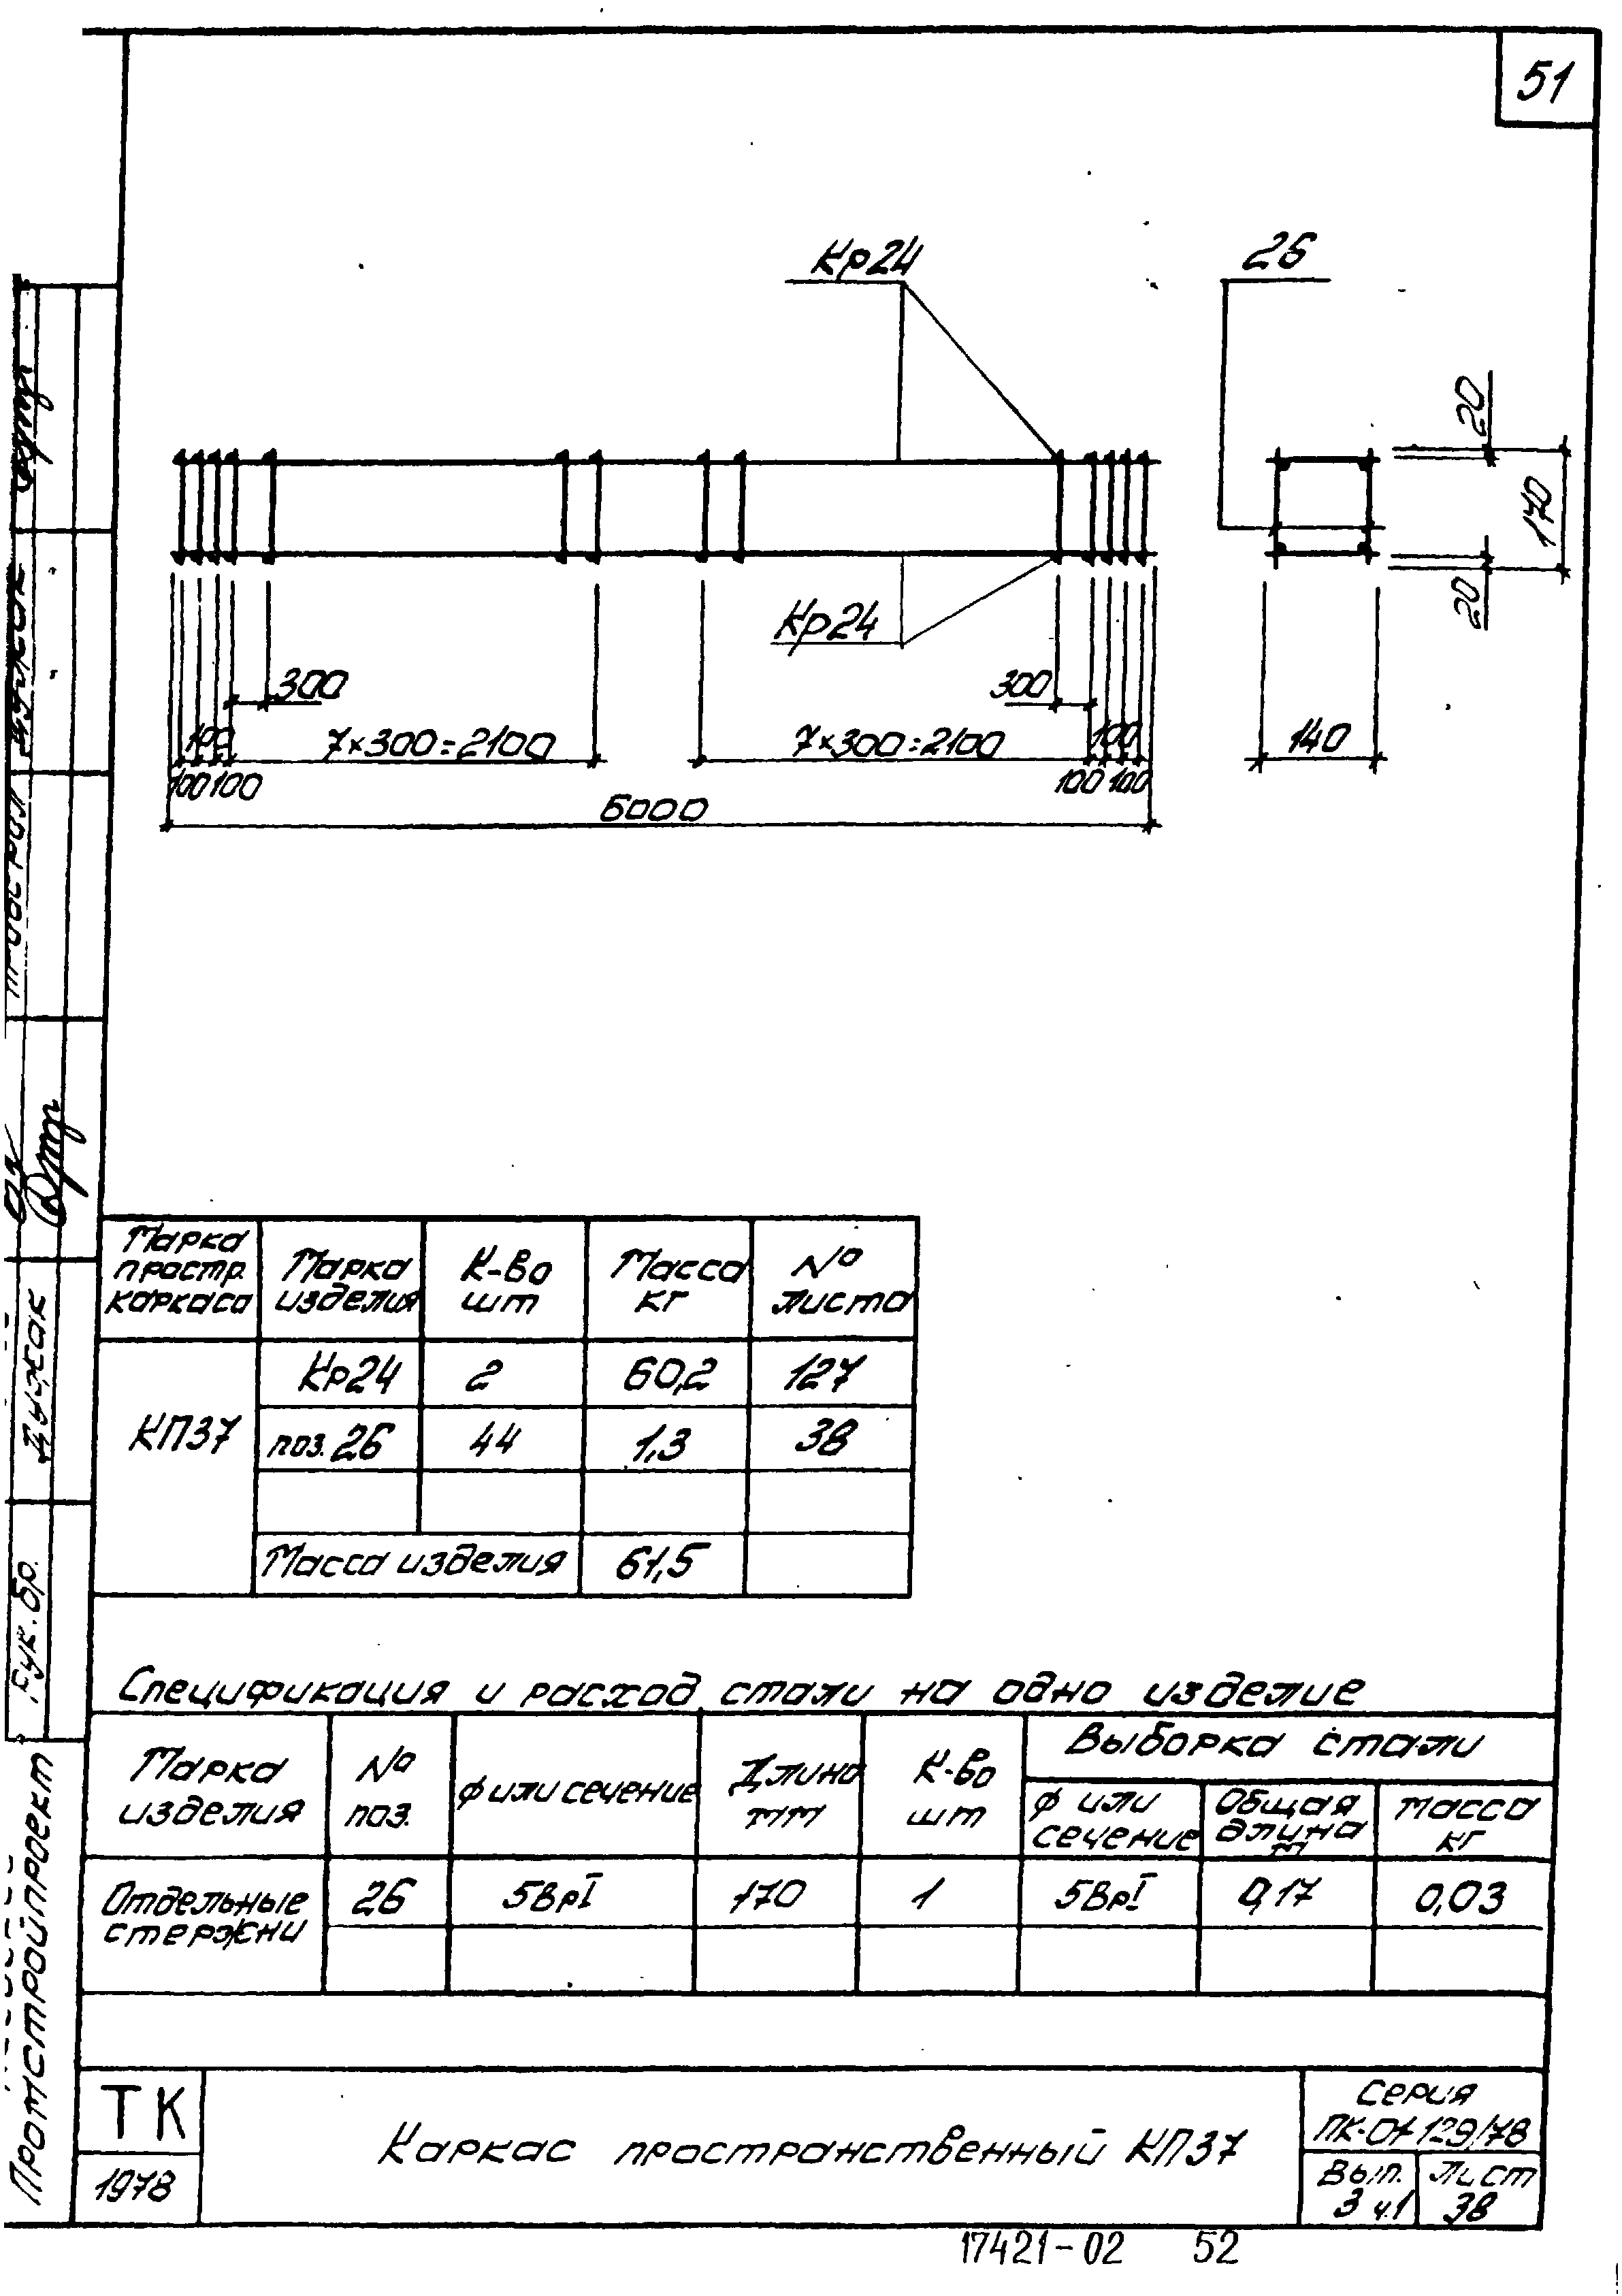 51
Кр24
26
20
170
20
Кр24
300
300
100
7×300=2100
7×300=2100
100
140
100 100
100 100
6000
Марка простр. каркаса
Марка изделия
К-во шт
Масса кг
№ листа
КП37
Кр24 2 60,2 127
поз. 26 44 1,3 38
Масса изделия 61,5
Спецификация и расход стали на одно изделие
Марка изделия
№ поз.
ф или сечение
Длина мм
К-во шт
Выборка стали
ф или сечение
Общая длина м
Масса кг
Отдельные стержни
26 5ВрI 170 1 5ВрI 0,17 0,03
ТК
1978
Каркас пространственный КП37
Серия
ПК-01-129/78
Вып.
3 ч.1
Лист
38
17421-02 52
Рук. бр.
Дужак
Дужак
Промстройпроект